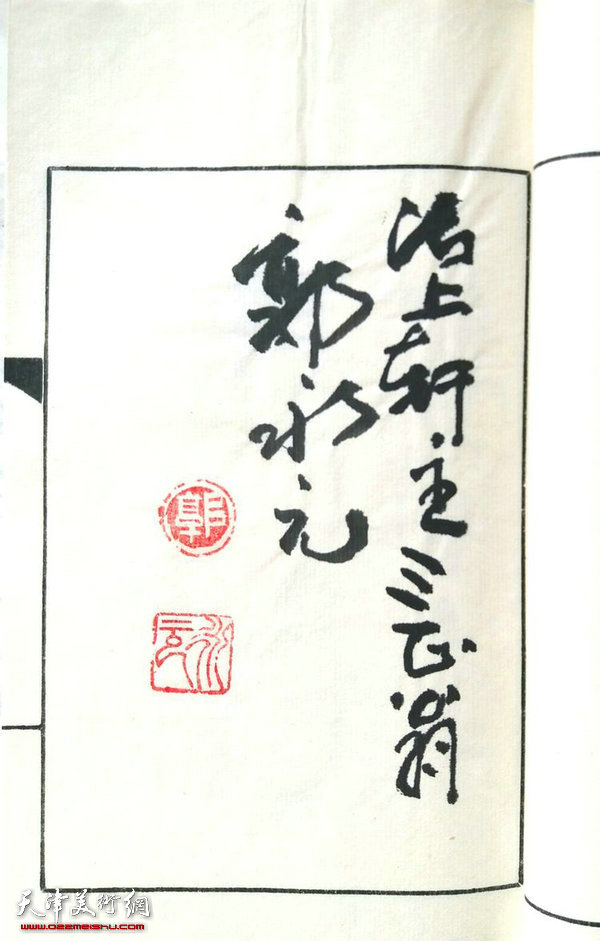 沽上轩主三正
郭永元
郭
永元
天津美術網
www.022meishu.com